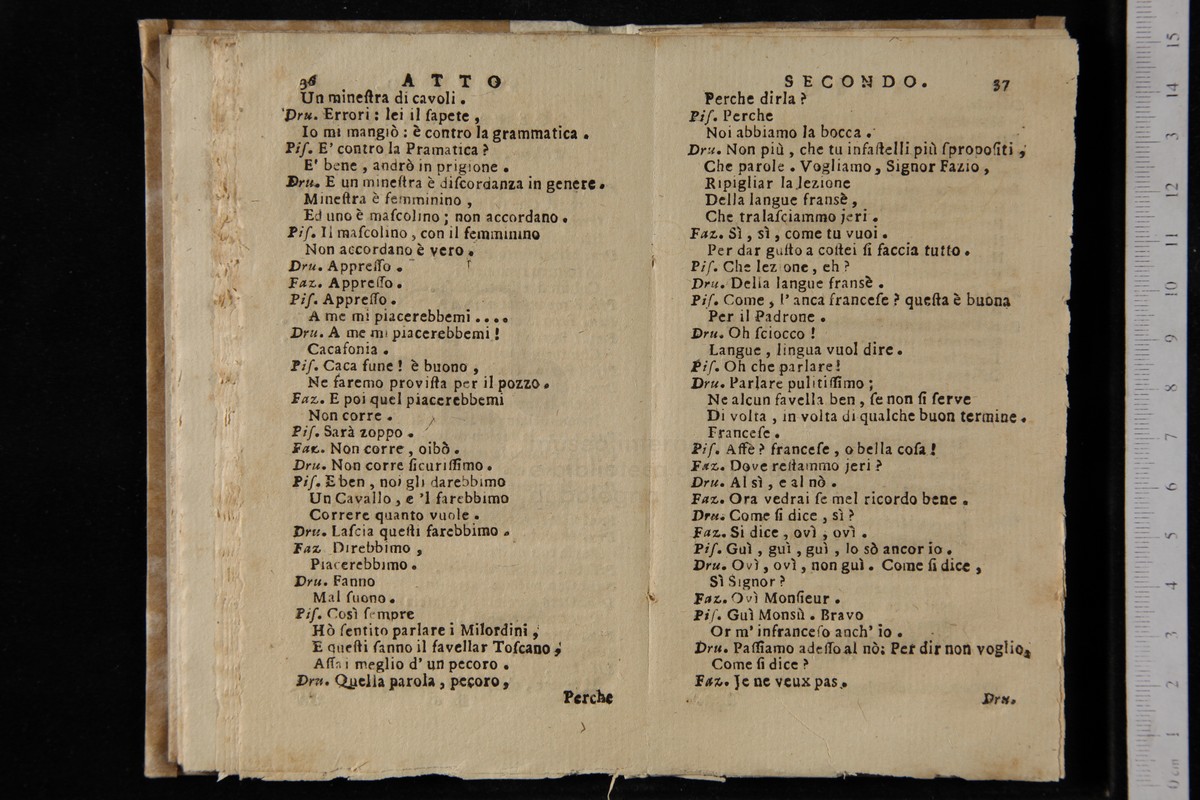 36 ATTO
Un mineſtra di cavoli.
Dru. Errori: lei il ſapete,
Io mi mangiò: è contro la grammatica.
Piſ. E' contro la Pramatica?
E' bene, andrò in prigione.
Dru. E un mineſtra è diſcordanza in genere.
Mineſtra è femminino,
Ed uno è maſcolino; non accordano.
Piſ. Il maſcolino, con il femminino
Non accordano è vero.
Dru. Appreſſo.
Faz. Appreſſo.
Piſ. Appreſſo.
A me mi piacerebbemi....
Dru. A me mi piacerebbemi!
Cacafonia.
Piſ. Caca fune! è buono,
Ne faremo proviſta per il pozzo.
Faz. E poi quel piacerebbemi
Non corre.
Piſ. Sarà zoppo.
Faz. Non corre, oibò.
Dru. Non corre ſicuriſſimo.
Piſ. E ben, noi gli darebbimo
Un Cavallo, e 'l farebbimo
Correre quanto vuole.
Dru. Laſcia queſti farebbimo.
Faz Direbbimo,
Piacerebbimo.
Dru. Fanno
Mal ſuono.
Piſ. Così ſempre
Hò ſentito parlare i Milordini,
E queſti fanno il favellar Toſcano,
Aſſai meglio d' un pecoro.
Dru. Quella parola, pecoro,
Perche
SECONDO. 37
Perche dirla?
Piſ. Perche
Noi abbiamo la bocca.
Dru. Non più, che tu infaſtelli più ſpropoſiti,
Che parole. Vogliamo, Signor Fazio,
Ripigliar la lezione
Della langue fransè,
Che tralaſciammo jeri.
Faz. Sì, sì, come tu vuoi.
Per dar guſto a coſtei ſi faccia tutto.
Piſ. Che lezione, eh?
Dru. Della langue fransè.
Piſ. Come, l' anca franceſe? queſta è buona
Per il Padrone.
Dru. Oh ſciocco!
Langue, lingua vuol dire.
Piſ. Oh che parlare!
Dru. Parlare pulitiſſimo;
Ne alcun favella ben, ſe non ſi ſerve
Di volta, in volta di qualche buon termine.
Franceſe.
Piſ. Affè? franceſe, o bella coſa!
Faz. Dove reſtammo jeri?
Dru. Al sì, e al nò.
Faz. Ora vedrai ſe mel ricordo bene.
Dru. Come ſi dice, sì?
Faz. Si dice, ovì, ovì.
Piſ. Guì, guì, guì, lo sò ancor io.
Dru. Ovì, ovì, non guì. Come ſi dice,
Sì Signor?
Faz. Ovì Monſieur.
Piſ. Guì Monsù. Bravo
Or m' infranceſo anch' io.
Dru. Paſſiamo adeſſo al nò; Per dir non voglio,
Come ſi dice?
Faz. Je ne veux pas.
Dru.